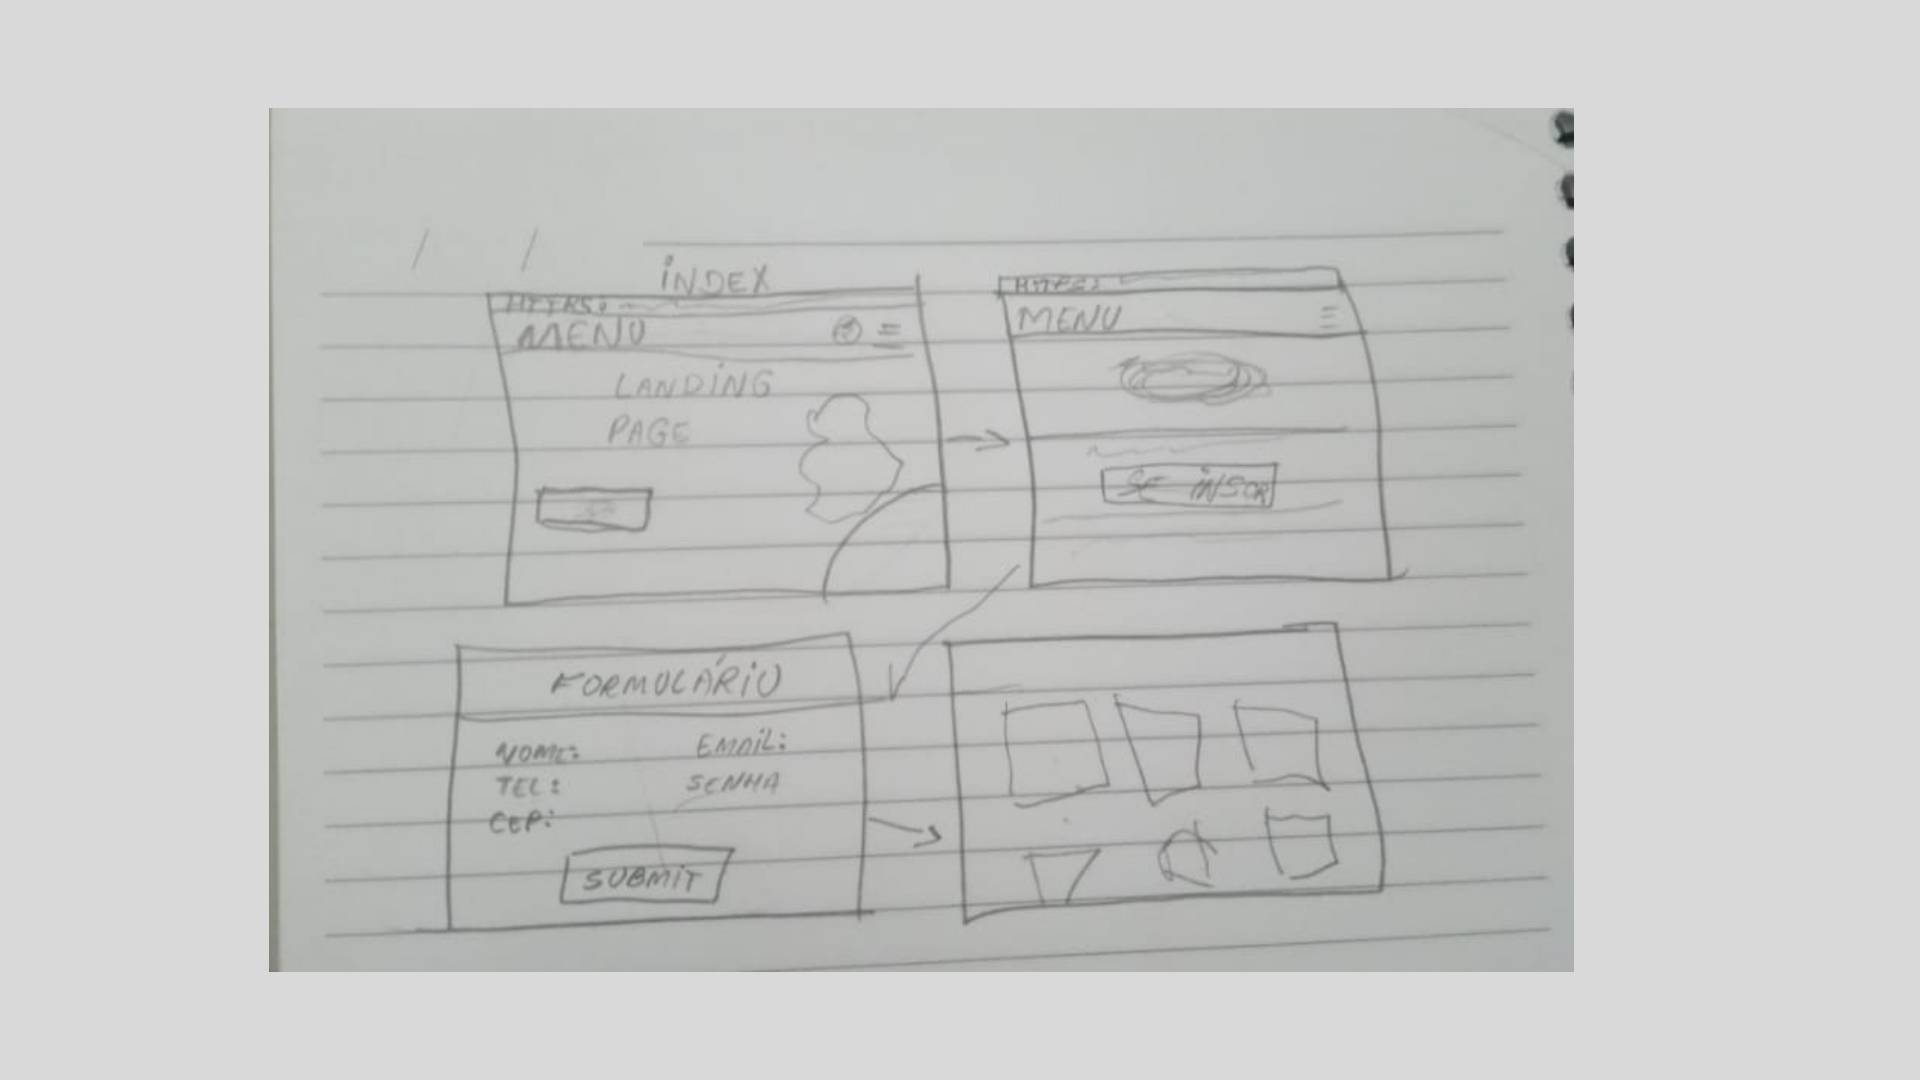 INDEX
HTTPS:
MENU
LANDING
PAGE
HTTPS:
MENU
SE INSCR
FORMULÁRIO
NOME:
EMAIL:
TEL:
SENHA
CEP:
SUBMIT